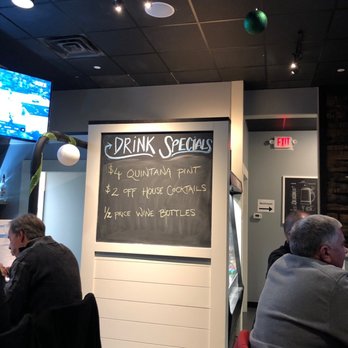 DRINK SPECIALS
$4 QUINTANA PINT
$2 OFF HOUSE COCKTAILS
1/2 PRICE WINE BOTTLES
EXIT